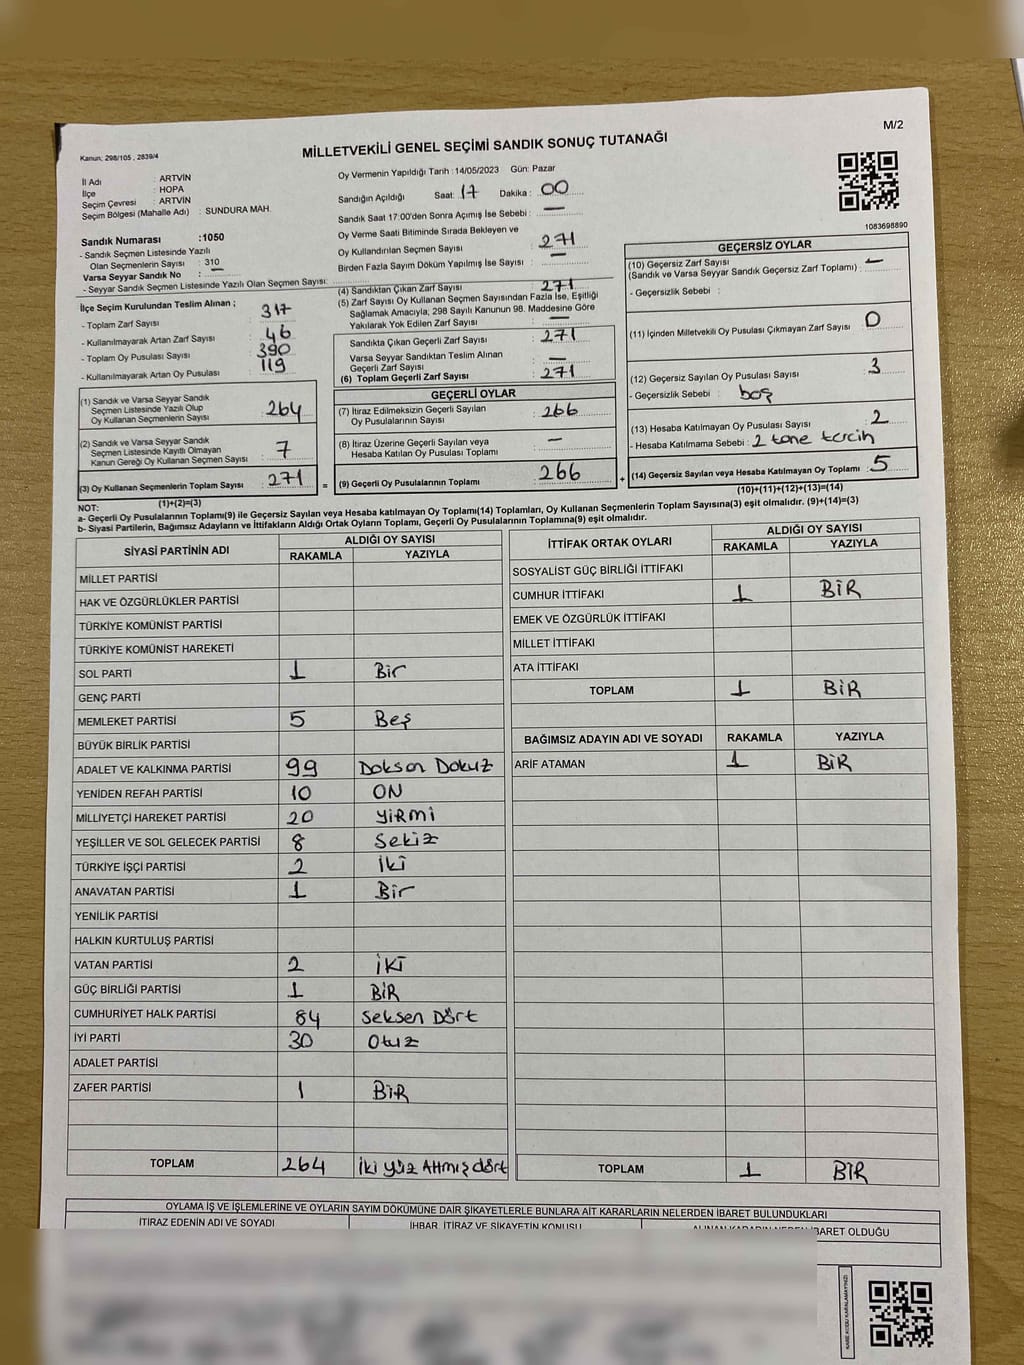 M/2
Kanun; 298/105 , 2839/4
MİLLETVEKİLİ GENEL SEÇİMİ SANDIK SONUÇ TUTANAĞI
İl Adı : ARTVİN
İlçe : HOPA
Seçim Çevresi : ARTVİN
Seçim Bölgesi (Mahalle Adı) : SUNDURA MAH.
Sandık Numarası :1050
- Sandık Seçmen Listesinde Yazılı
Olan Seçmenlerin Sayısı : 310
Varsa Seyyar Sandık No : —
- Seyyar Sandık Seçmen Listesinde Yazılı Olan Seçmen Sayısı:
Oy Vermenin Yapıldığı Tarih :14/05/2023 Gün: Pazar
Sandığın Açıldığı Saat: 17 Dakika : 00
Sandık Saat 17:00'den Sonra Açımış İse Sebebi : —
Oy Verme Saati Bitiminde Sırada Bekleyen ve
Oy Kullandırılan Seçmen Sayısı : 271
Birden Fazla Sayım Döküm Yapılmış İse Sayısı : —
1083698890
İlçe Seçim Kurulundan Teslim Alınan ;
- Toplam Zarf Sayısı : 317
- Kullanılmayarak Artan Zarf Sayısı : 46
- Toplam Oy Pusulası Sayısı : 390
- Kullanılmayarak Artan Oy Pusulası : 119
(1) Sandık ve Varsa Seyyar Sandık
Seçmen Listesinde Yazılı Olup
Oy Kullanan Seçmenlerin Sayısı : 264
(2) Sandık ve Varsa Seyyar Sandık
Seçmen Listesinde Kayıtlı Olmayan
Kanun Gereği Oy Kullanan Seçmen Sayısı : 7
(3) Oy Kullanan Seçmenlerin Toplam Sayısı : 271 =
(1)+(2)=(3)
(4) Sandıktan Çıkan Zarf Sayısı : 271
(5) Zarf Sayısı Oy Kullanan Seçmen Sayısından Fazla İse, Eşitliği
Sağlamak Amacıyla; 298 Sayılı Kanunun 98. Maddesine Göre
Yakılarak Yok Edilen Zarf Sayısı : —
Sandıkta Çıkan Geçerli Zarf Sayısı : 271
Varsa Seyyar Sandıktan Teslim Alınan
Geçerli Zarf Sayısı : —
(6) Toplam Geçerli Zarf Sayısı : 271
GEÇERLİ OYLAR
(7) İtiraz Edilmeksizin Geçerli Sayılan
Oy Pusulalarının Sayısı : 266
(8) İtiraz Üzerine Geçerli Sayılan veya
Hesaba Katılan Oy Pusulası Toplamı : —
(9) Geçerli Oy Pusulalarının Toplamı : 266 +
GEÇERSİZ OYLAR
(10) Geçersiz Zarf Sayısı
(Sandık ve Varsa Seyyar Sandık Geçersiz Zarf Toplamı) : —
- Geçersizlik Sebebi :
(11) İçinden Milletvekili Oy Pusulası Çıkmayan Zarf Sayısı : 0
(12) Geçersiz Sayılan Oy Pusulası Sayısı : 3
- Geçersizlik Sebebi : boş
(13) Hesaba Katılmayan Oy Pusulası Sayısı : 2
- Hesaba Katılmama Sebebi : 2 tane tercih
(14) Geçersiz Sayılan veya Hesaba Katılmayan Oy Toplamı : 5
(10)+(11)+(12)+(13)=(14)
NOT:
a- Geçerli Oy Pusulalarının Toplamı(9) ile Geçersiz Sayılan veya Hesaba katılmayan Oy Toplamı(14) Toplamları, Oy Kullanan Seçmenlerin Toplam Sayısına(3) eşit olmalıdır. (9)+(14)=(3)
b- Siyasi Partilerin, Bağımsız Adayların ve İttifakların Aldığı Ortak Oyların Toplamı, Geçerli Oy Pusulalarının Toplamına(9) eşit olmalıdır.
SİYASİ PARTİNİN ADI ALDIĞI OY SAYISI
RAKAMLA YAZIYLA
MİLLET PARTİSİ
HAK VE ÖZGÜRLÜKLER PARTİSİ
TÜRKİYE KOMÜNİST PARTİSİ
TÜRKİYE KOMÜNİST HAREKETİ
SOL PARTİ 1 Bir
GENÇ PARTİ
MEMLEKET PARTİSİ 5 Beş
BÜYÜK BİRLİK PARTİSİ
ADALET VE KALKINMA PARTİSİ 99 Doksan Dokuz
YENİDEN REFAH PARTİSİ 10 ON
MİLLİYETÇİ HAREKET PARTİSİ 20 YİRMİ
YEŞİLLER VE SOL GELECEK PARTİSİ 8 Sekiz
TÜRKİYE İŞÇİ PARTİSİ 2 İki
ANAVATAN PARTİSİ 1 Bir
YENİLİK PARTİSİ
HALKIN KURTULUŞ PARTİSİ
VATAN PARTİSİ 2 İKİ
GÜÇ BİRLİĞİ PARTİSİ 1 BİR
CUMHURİYET HALK PARTİSİ 84 Seksen Dört
İYİ PARTİ 30 Otuz
ADALET PARTİSİ
ZAFER PARTİSİ 1 BİR
TOPLAM 264 İki Yüz Atmış dört
İTTİFAK ORTAK OYLARI ALDIĞI OY SAYISI
RAKAMLA YAZIYLA
SOSYALİST GÜÇ BİRLİĞİ İTTİFAKI
CUMHUR İTTİFAKI 1 BİR
EMEK VE ÖZGÜRLÜK İTTİFAKI
MİLLET İTTİFAKI
ATA İTTİFAKI
TOPLAM 1 BİR
BAĞIMSIZ ADAYIN ADI VE SOYADI RAKAMLA YAZIYLA
ARİF ATAMAN 1 BİR
TOPLAM 1 BİR
OYLAMA İŞ VE İŞLEMLERİNE VE OYLARIN SAYIM DÖKÜMÜNE DAİR ŞİKAYETLERLE BUNLARA AİT KARARLARIN NELERDEN İBARET BULUNDUKLARI
İTİRAZ EDENİN ADI VE SOYADI İHBAR, İTİRAZ VE ŞİKAYETİN KONUSU ALINAN KARARIN NEDEN İBARET OLDUĞU
KARE KODU KARALAMAYINIZ!